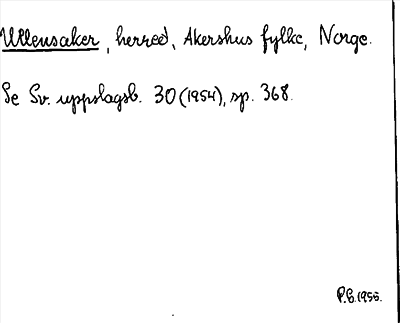 Ullensaker, herred, Akershus fylke, Norge.
Se Sv. uppslagsb. 30 (1954), sp. 368.
P.G. 1956.